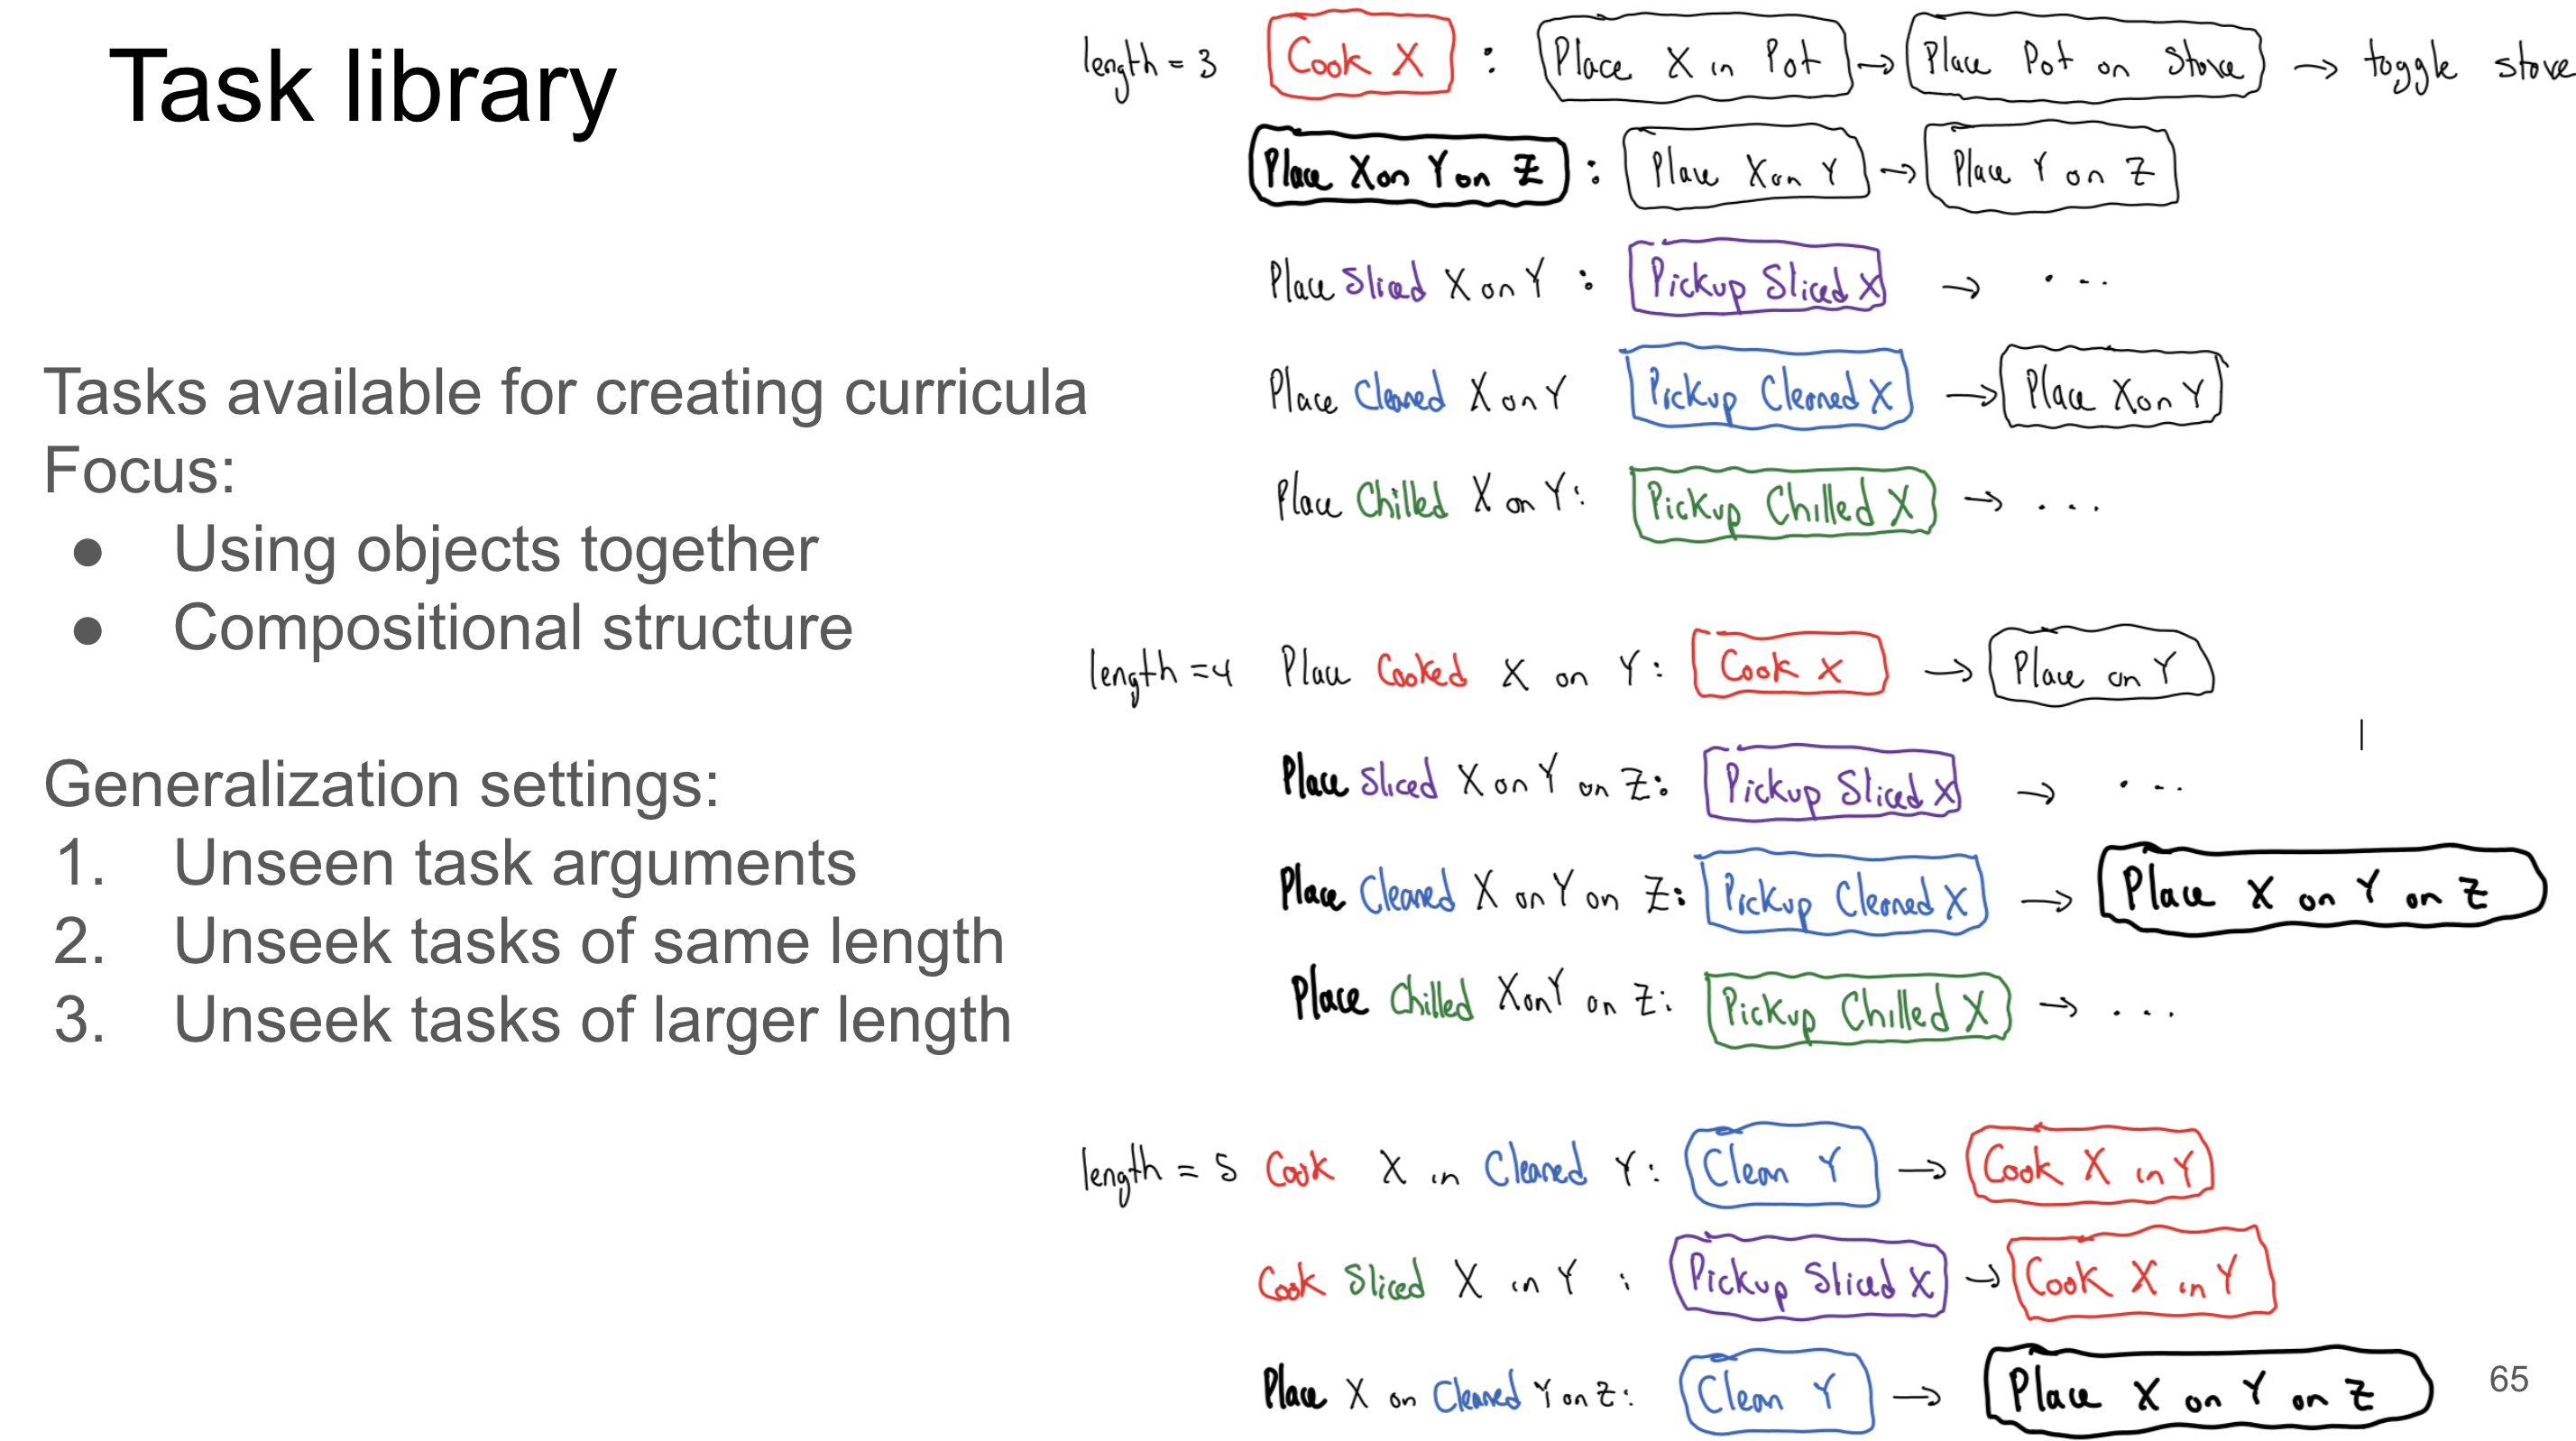 Task library
Tasks available for creating curricula
Focus:
● Using objects together
● Compositional structure
Generalization settings:
1. Unseen task arguments
2. Unseek tasks of same length
3. Unseek tasks of larger length
length = 3 Cook X : Place X in Pot → Place Pot on Stove → toggle stove
Place X on Y on Z : Place X on Y → Place Y on Z
Place Sliced X on Y : Pickup Sliced X → ...
Place Cleaned X on Y Pickup Cleaned X → Place X on Y
Place Chilled X on Y: Pickup Chilled X → ...
length = 4 Place Cooked X on Y: Cook X → Place on Y
Place Sliced X on Y on Z: Pickup Sliced X → ...
Place Cleaned X on Y on Z: Pickup Cleaned X → Place X on Y on Z
Place Chilled X on Y on Z: Pickup Chilled X → ...
length = 5 Cook X in Cleaned Y: Clean Y → Cook X in Y
Cook Sliced X in Y : Pickup Sliced X → Cook X in Y
Place X on Cleaned Y on Z: Clean Y → Place X on Y on Z
65